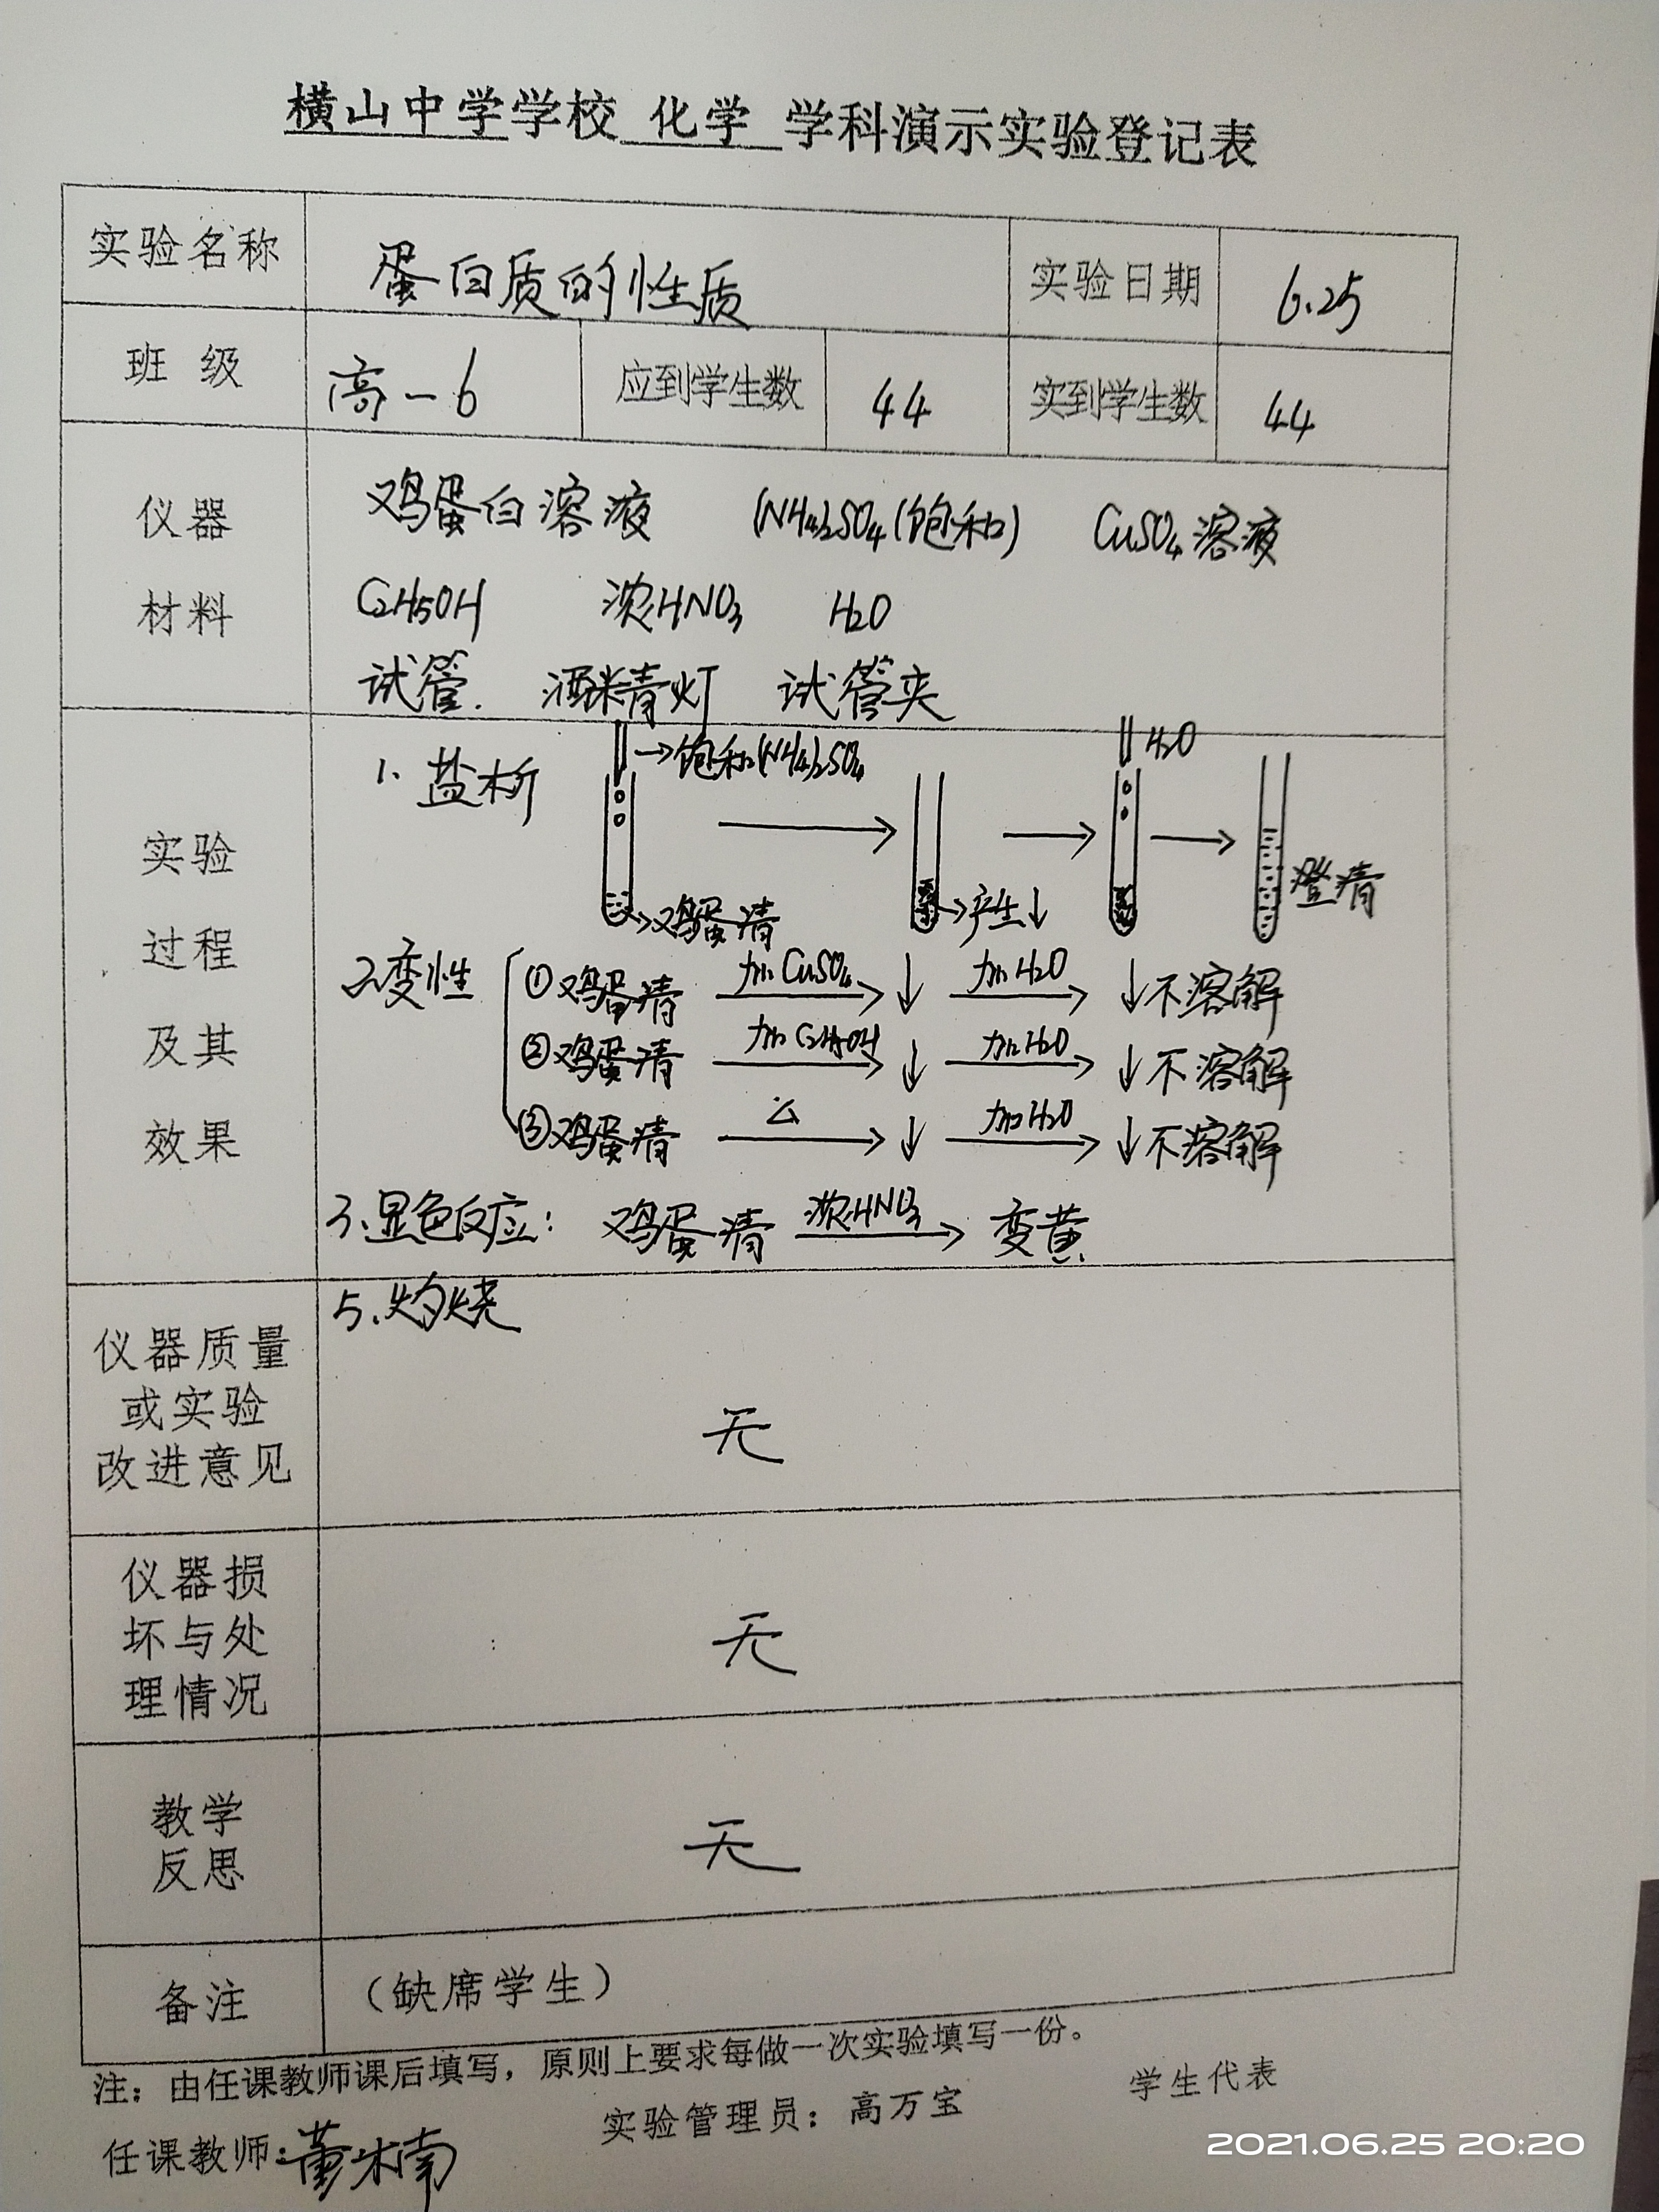 横山中学学校 化学 学科演示实验登记表
实验名称 蛋白质的性质 实验日期 6.25
班 级 高一6 应到学生数 44 实到学生数 44
仪器
材料
鸡蛋白溶液 (NH4)2SO4(饱和) CuSO4溶液
C2H5OH 浓HNO3 H2O
试管. 酒精灯 试管夹
实验
过程
及其
效果
1. 盐析 →饱和(NH4)2SO4 H2O
→鸡蛋清 →产生↓ 澄清
2.变性 ①鸡蛋清 加CuSO4 ↓ 加H2O ↓不溶解
②鸡蛋清 加C2H5OH ↓ 加H2O ↓不溶解
③鸡蛋清 △ ↓ 加H2O ↓不溶解
3.显色反应: 鸡蛋清 浓HNO3 变黄
5.灼烧
仪器质量
或实验
改进意见
无
仪器损
坏与处
理情况
无
教学
反思
无
备注 （缺席学生）
注：由任课教师课后填写，原则上要求每做一次实验填写一份。
任课教师：董木南 实验管理员：高万宝 学生代表
2021.06.25 20:20